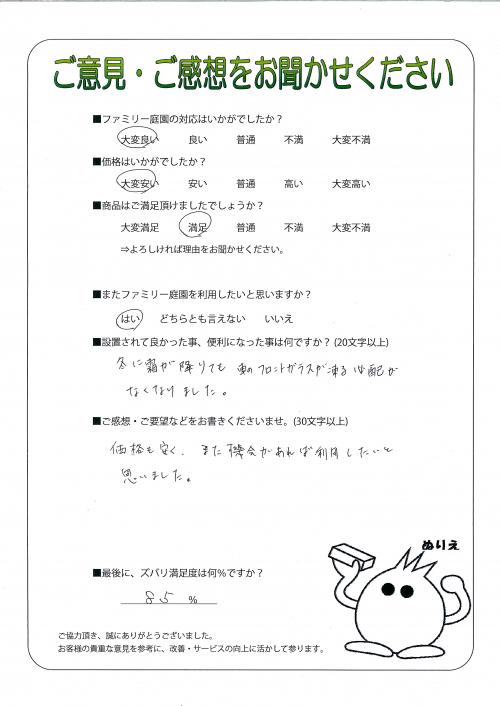 ご意見・ご感想をお聞かせください
■ファミリー庭園の対応はいかがでしたか？
大変良い 良い 普通 不満 大変不満
■価格はいかがでしたか？
大変安い 安い 普通 高い 大変高い
■商品はご満足頂けましたでしょうか？
大変満足 満足 普通 不満 大変不満
⇒よろしければ理由をお聞かせください。
■またファミリー庭園を利用したいと思いますか？
はい どちらとも言えない いいえ
■設置されて良かった事、便利になった事は何ですか？ (20文字以上)
冬に霜が降りても 車のフロントガラスが凍る心配が
なくなりました。
■ご感想・ご要望などをお書きくださいませ。(30文字以上)
価格も安く、また機会があれば利用したいと
思いました。
ぬりえ
■最後に、ズバリ満足度は何％ですか？
85 %
ご協力頂き、誠にありがとうございました。
お客様の貴重な意見を参考に、改善・サービスの向上に活かして参ります。